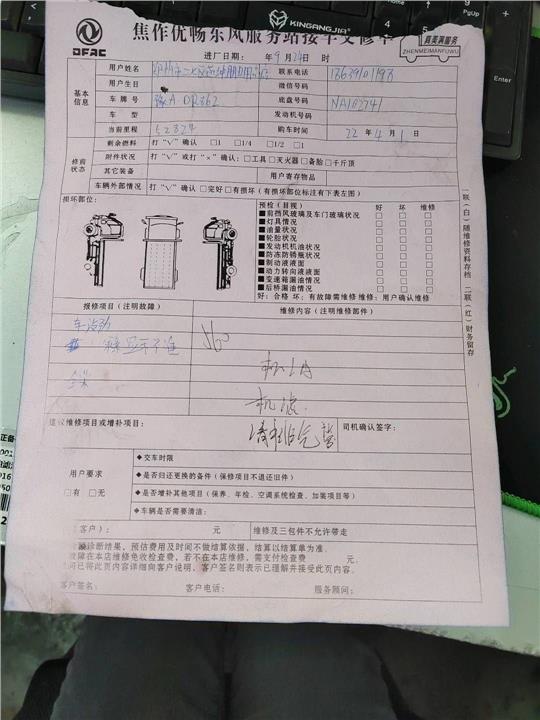 DFAC
焦作优畅东风服务站接车交修单
真美满服务
ZHENMEIMANFUWU
KINGANGJIA
PgUp
进厂日期: 年 9 月 24 日 时
基本信息
用户姓名
联系电话
用户生日
微信号码
车牌号 豫A DR362
底盘号码 NA102741
车型
发动机号码
当前里程 52324
购车时间 22 年 4 月 1 日
修前状态
剩余燃料 打“√”确认 □1 □1/4 □1/2 □1
附件状况 打“√”或打“×”确认:□工具□灭火器□备胎□千斤顶
其它装备
用户寄存物品
车辆外部情况 打“√”确认□完好□有损坏(有损坏部位标注有下表左图)
损坏部位:
预检(目视) 好 坏 维修
■前挡风玻璃及车门玻璃状况
■灯具情况
■油量状况
■轮胎状况
■发动机机油状况
■防冻防锈瓶状况
■制动液液面
■动力转向液液面
■变速箱漏油情况
■后桥漏油情况
好:合格 坏:有故障需维修 维修:用户确认维修
一联(白)随维修资料存档 二联(红)财务留存
报修项目(注明故障)
维修内容(注明维修部件)
不准
机油
机滤
建议维修项目或增补项目:
司机确认签字:
用户要求
□有 □无
◆交车时限
◆是否归还更换的备件(保修项目不退还旧件)
◆是否增补其他项目(保养、年检、空调系统检查、加装项目等)
◆车辆是否需要清洁:
客户): 元
维修及三包件不允许带走
诊断结果,预估费用及时间不做结算依据,结算以结算单为准。
故障在本店维修免收检查费,若不在本店维修,需支付检查费 元.
已将此页内容详细向客户说明,客户签名则表示已理解并接受此页内容。
客户签名: 客户电话: 服务顾问: